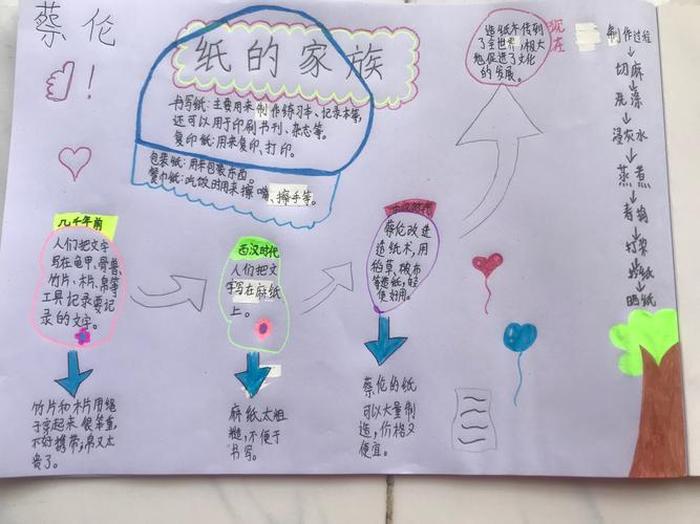 蔡伦
!
纸的家族
书写纸:主要用来制作练习本、记录本等,
还可以用于印刷书刊、杂志等。
复印纸:用来复印、打印。
包装纸:用来包装东西。
餐巾纸:吃饭时用来擦嘴、擦手等。
造纸术传到
了全世界,极大
地促进了文化
的发展。
现在
制作过程
切麻
洗涤
浸灰水
蒸煮
舂捣
打浆
抄纸
晒纸
几千年前
人们把文字
写在龟甲、骨兽、
竹片、木片、帛等
工具记录要记
录的文字。
西汉时代
人们把文
字写在麻纸
上。
蔡伦改进
造纸术,用
稻草、破布
等造纸,轻
便好用。
竹片和木片用绳
子穿起来很笨重,
不好携带,帛又太
贵了。
麻纸太粗
糙,不便于
书写。
蔡伦的纸
可以大量制
造,价格又
便宜。